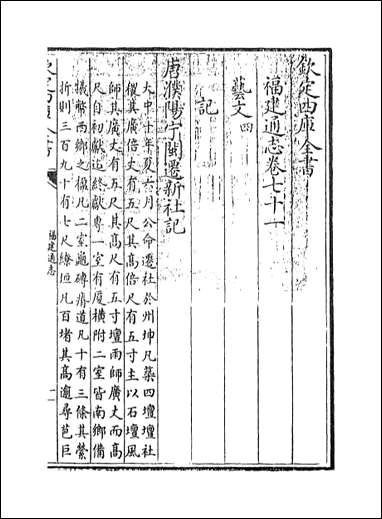 欽定四庫全書
福建通志卷七十一
藝文四
記
唐濮陽宁閩遷新社記
大中十年夏六月公命遷社於州坤凡築四壇壇社
稷其廣倍丈有五尺其高倍尺有五寸主以石壇風
師其廣丈有五尺其高尺有五寸壇雨師廣丈而高
尺自初獻迄終獻專一室有廈橫附二室皆南鄉備
犧幣西鄉之楹凡二室甋磚甃道凡十有三條其縈
折則三百九十有七尺繚垣凡百堵其高逾尋芭巨
欽定四庫全書
福建通志
一